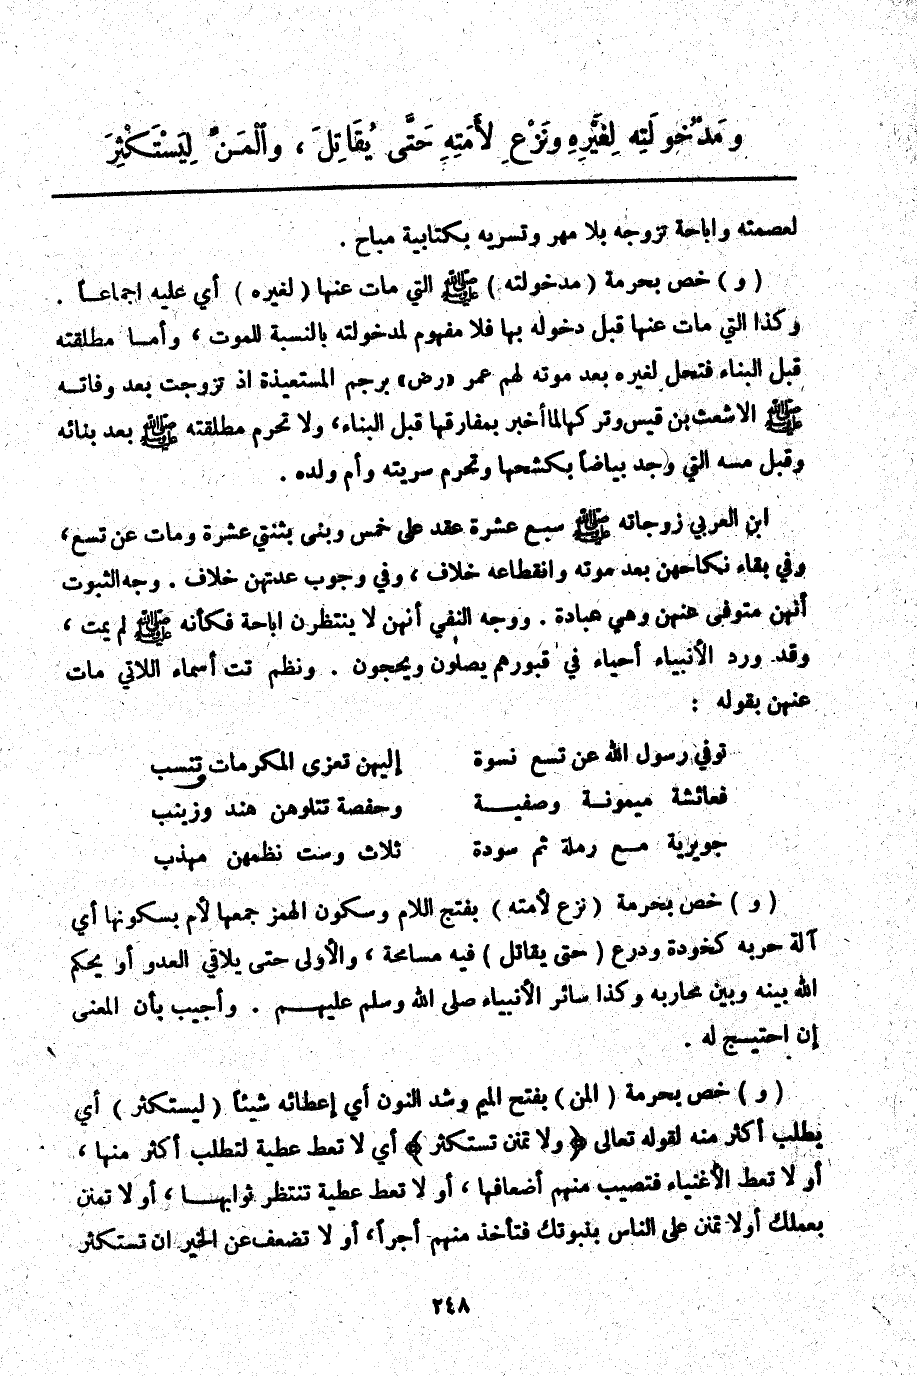 وَمَدْخُولَتِهِ لِغَيْرِهِ وَنَزْعِ لَأْمَتِهِ حَتَّى يُقَاتِلَ ، وَالْمَنِّ لِيَسْتَكْثِرَ
لعصمته واباحة تزوجه بلا مهر وتسريه بكتابية مباح .
( و ) خص بحرمة ( مدخولته ) ﷺ التي مات عنها ( لغيره ) أي عليه اجماعـاً .
وكذا التي مات عنها قبل دخوله بها فلا مفهوم لمدخولته بالنسبة للموت ، وأمـا مطلقته
قبل البناء فتحل لغيره بعد موته لهم عمر «رض» برجم المستعيذة اذ تزوجت بعد وفاتـه
ﷺ الاشعث بن قيس وتركها لما أخبر بمفارقها قبل البناء، ولا تحرم مطلقته ﷺ بعد بنائه
وقبل مسه التي وجد بياضاً بكشحها وتحرم سريته وأم ولده .
ابن العربي زوجاته ﷺ سبع عشرة عقد على خمس وبنى بثنتي عشرة ومات عن تسع،
وفي بقاء نكاحهن بعد موته وانقطاعه خلاف ، وفي وجوب عدتهن خلاف . وجه الثبوت
أنهن متوفى عنهن وهي عبادة . ووجه النفي أنهن لا ينتظرن اباحة فكأنه ﷺ لم يمت ،
وقد ورد الأنبياء أحياء في قبورهم يصلون ويحجون . ونظم تت أسماء اللاتي مات
عنهن بقوله :
توفي رسول الله عن تسع نسوة إليهن تعزى المكرمات وتنسب
فعائشة ميمونـة وصفيـــة وحفصة تتلوهن هند وزينب
جويرية مـع رملة ثم سودة ثلاث وست نظمهن مهذب
( و ) خص بحرمة ( نزع لأمته ) بفتح اللام وسكون الهمز جمعها لأم بسكونها أي
آلة حربه كخودة ودرع ( حتى يقاتل ) فيه مسامحة ، والأولى حتى يلاقي العدو أو يحكم
الله بينه وبين محاربه وكذا سائر الأنبياء صلى الله وسلم عليهــم . وأجيب بأن المعنى
إن احتيـج له .
( و ) خص بحرمة ( المن ) بفتح الميم وشد النون أي إعطائه شيئاً ( ليستكثر ) أي
يطلب أكثر منه لقوله تعالى ﴿ ولا تمنن تستكثر ﴾ أي لا تعط عطية لتطلب أكثر منها ،
أو لا تعط الأغنياء فتصيب منهم أضعافها ، أو لا تعط عطية تنتظر ثوابهــا ، أو لا تمنن
بعملك أولا تمنن على الناس بنبوتك فتأخذ منهم أجراً، أو لا تضعف عن الخير ان تستكثر
٢٤٨